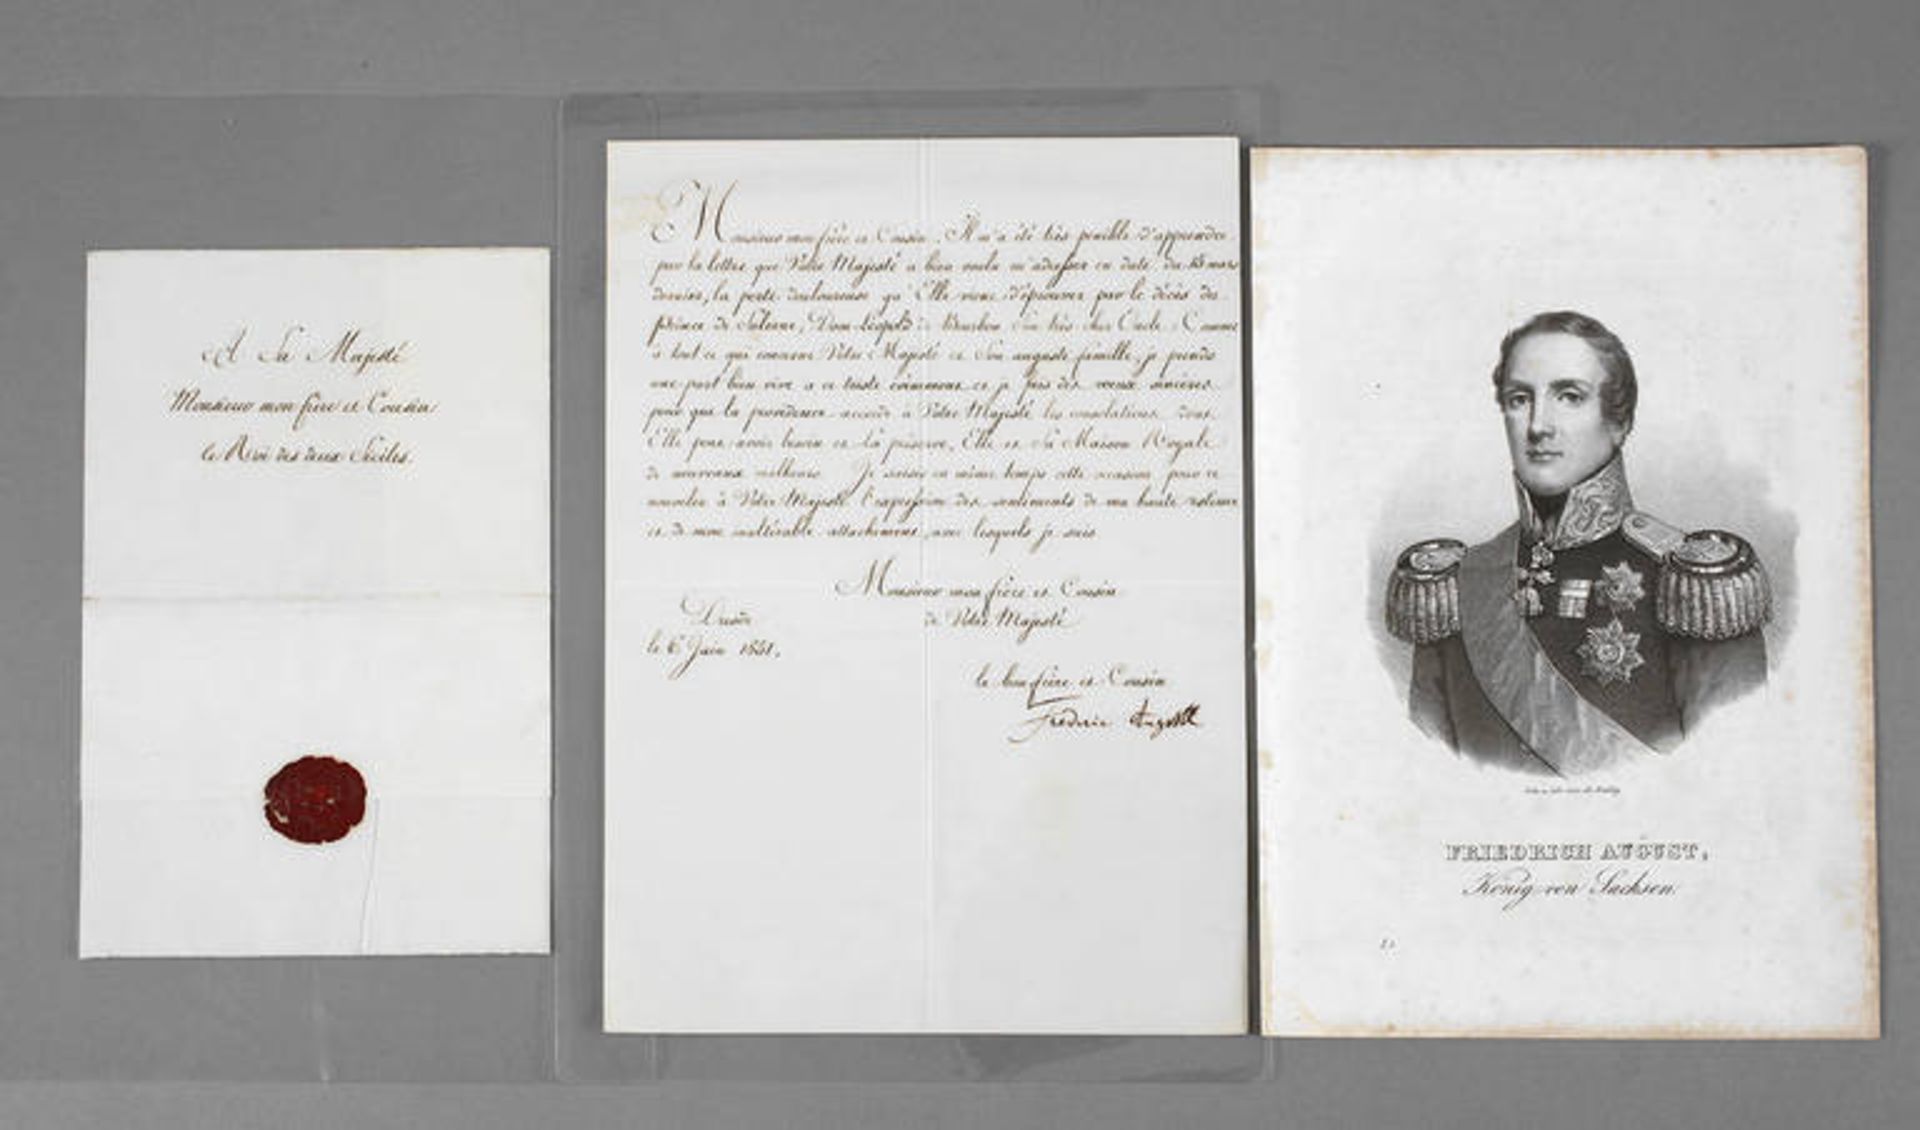 A Sa Majesté
Monsieur mon frère et Cousin
le Roi des deux Siciles.
Monsieur mon frère et Cousin. Il m'a été très pénible d'apprendre
par la lettre que Votre Majesté a bien voulu m'adresser en date du 15 mars
dernier, la perte douloureuse qu'Elle vient d'éprouver par le décès du
Prince de Salerne, Dom Léopold de Bourbon Son très cher Oncle. Comme
à tout ce qui concerne Votre Majesté et Son auguste famille, je prends
une part bien vive à ce triste évènement et je fais des voeux sincères
pour que la providence accorde à Votre Majesté les consolations dont
Elle peut avoir besoin et La préserve, Elle et Sa Maison Royale
de nouveaux malheurs. Je saisis en même temps cette occasion pour
renouveler à Votre Majesté l'expression des sentiments de ma haute estime
et de mon inaltérable attachement, avec lesquels je suis
Monsieur mon frère et Cousin
de Votre Majesté
Dresde
le 6 Juin 1851.
le bon frère et Cousin
Frédéric Auguste
FRIEDRICH AUGUST,
König von Sachsen.